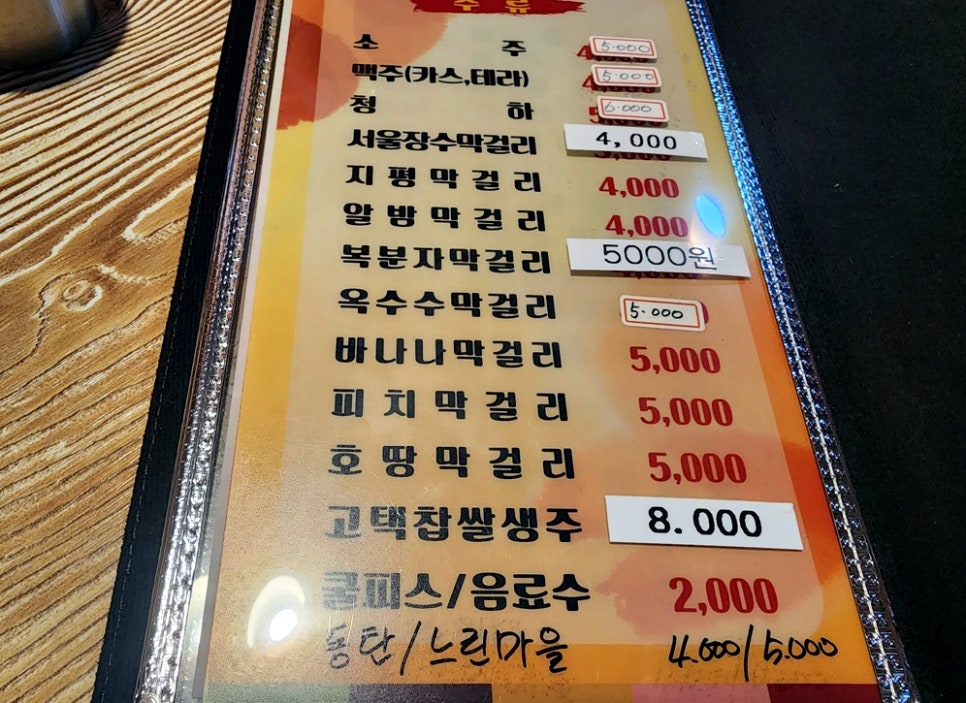 주류
소 주 5.000
맥주(카스,테라) 5.000
청 하 6.000
서울장수막걸리 4,000
지평막걸리 4,000
알밤막걸리 4,000
복분자막걸리 5000원
옥수수막걸리 5.000
바나나막걸리 5,000
피치막걸리 5,000
호땅막걸리 5,000
고택찹쌀생주 8.000
쿨피스/음료수 2,000
동탄/느린마을 4.000/5.000